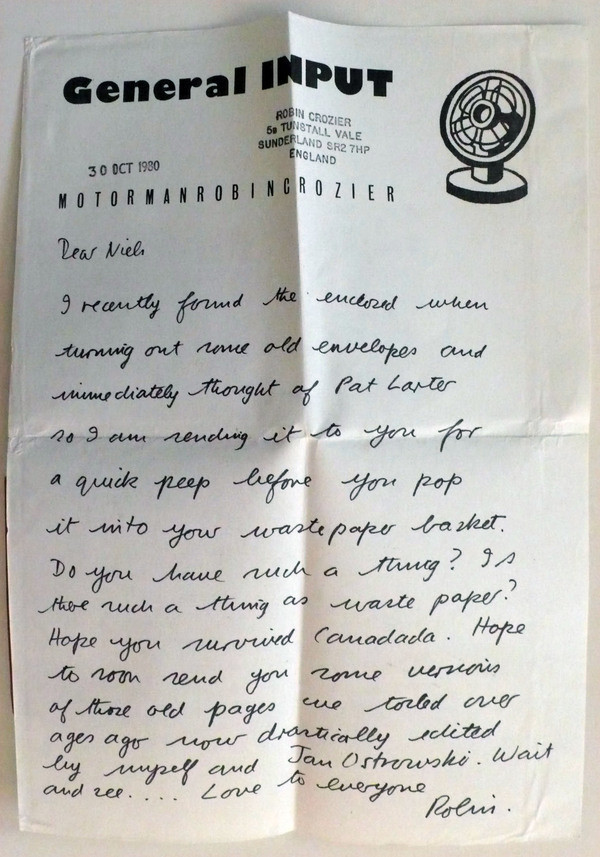 General INPUT
ROBIN CROZIER
5B TUNSTALL VALE
SUNDERLAND SR2 7HP
ENGLAND
30 OCT 1980
MOTORMANROBINCROZIER
Dear Niels
I recently found the enclosed when
turning out some old envelopes and
immediately thought of Pat Larter
so I am sending it to you for
a quick peep before you pop
it into your waste paper basket.
Do you have such a thing? Is
there such a thing as waste paper?
Hope you survived Canadada. Hope
to soon send you some versions
of those old pages we toiled over
ages ago now drastically edited
by myself and Jan Ostrowski. Wait
and see.... Love to everyone
Robin.